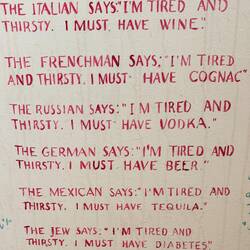 THE ITALIAN SAYS:"I'M TIRED AND
THIRSTY. I MUST HAVE WINE."
THE FRENCHMAN SAYS; "I'M TIRED
AND THIRSTY. I MUST HAVE COGNAC"
THE RUSSIAN SAYS:"I'M TIRED AND
THIRSTY. I MUST HAVE VODKA."
THE GERMAN SAYS: "I'M TIRED AND
THIRSTY. I MUST HAVE BEER."
THE MEXICAN SAYS: "I'M TIRED AND
THIRSTY. I MUST HAVE TEQUILA."
THE JEW SAYS: "I'M TIRED AND
THIRSTY. I MUST HAVE DIABETES"